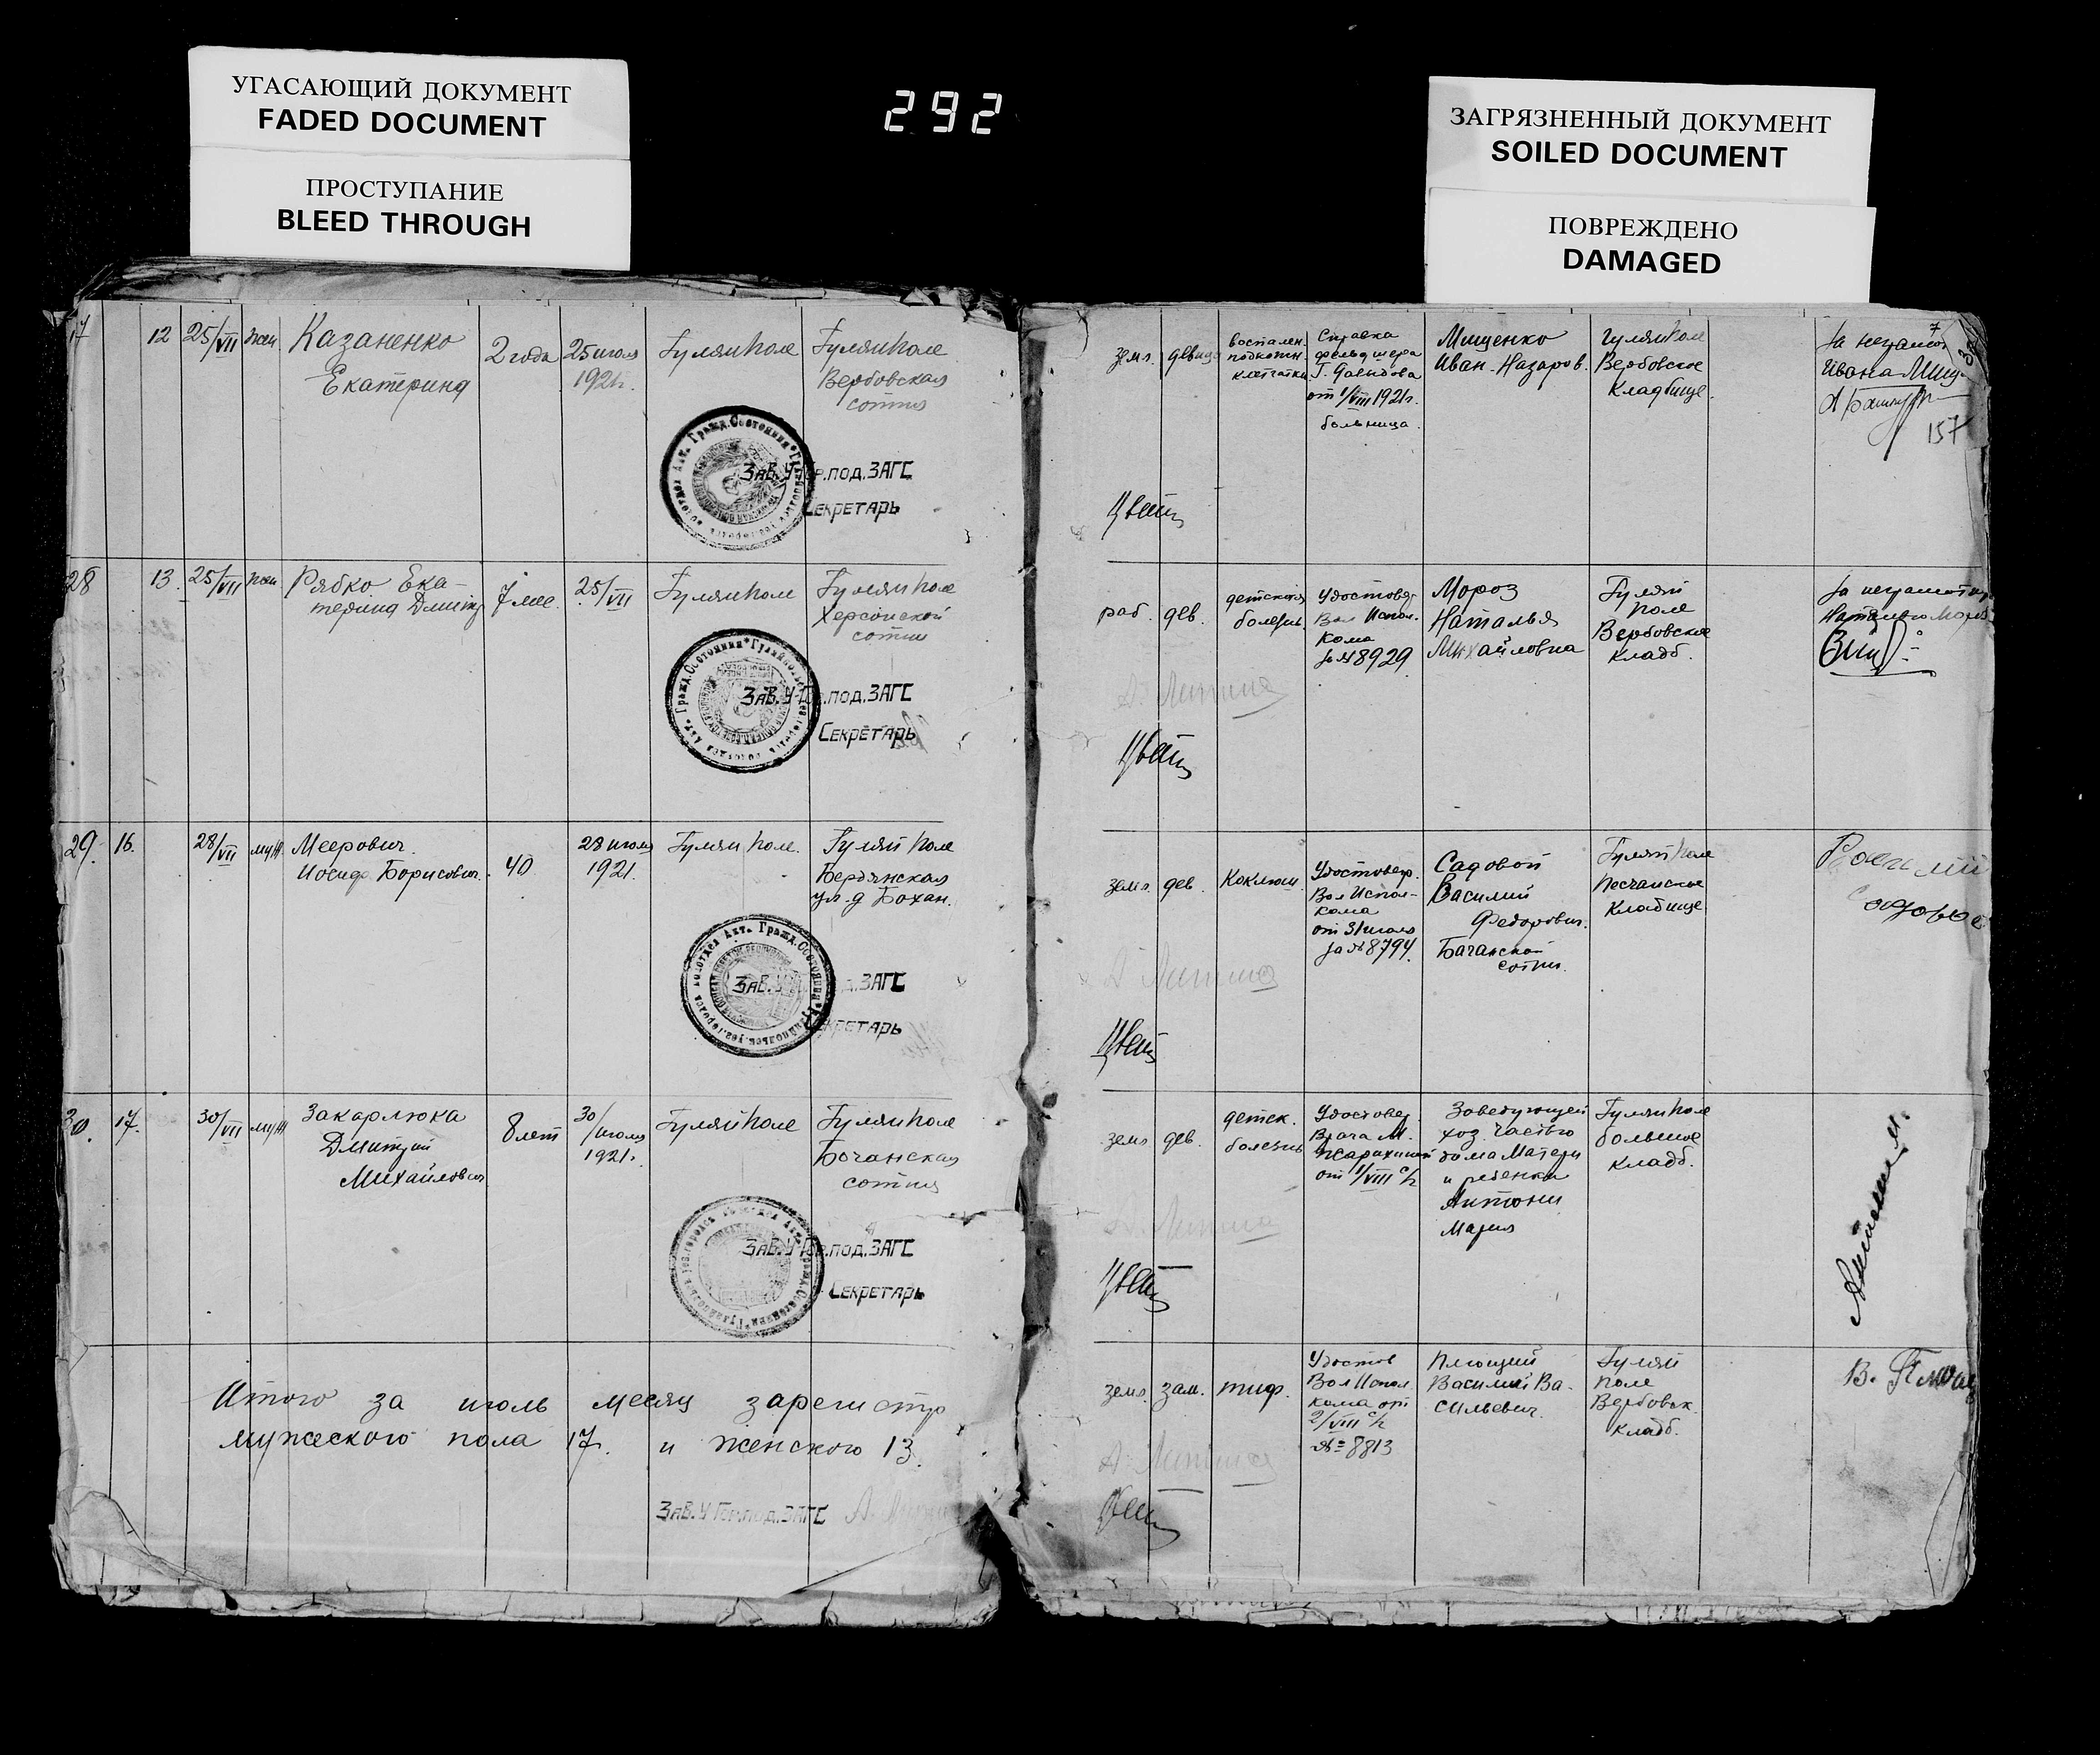 УГАСАЮЩИЙ ДОКУМЕНТ
FADED DOCUMENT
ПРОСТУПАНИЕ
BLEED THROUGH
292
ЗАГРЯЗНЕННЫЙ ДОКУМЕНТ
SOILED DOCUMENT
ПОВРЕЖДЕНО
DAMAGED
12 25/VII жен
Казаненко
Екатерина
2 года
25 июля
1921г.
Гуляйполе
Гуляйполе
Вербовская
сотня
Зав. У-Гор.под.ЗАГС
Секретарь
28 13. 25/VII жен
Рябко Ека-
терина Дмитр
7 мес.
25/VII
Гуляйполе
Гуляйполе
Херсонской
сотни
Зав. У-Гор.под.ЗАГС
Секретарь
29. 16. 28/VII муж.
Меерович
Иосиф Борисович.
40
28 июля
1921.
Гуляй поле.
Гуляй поле
Бердянская
ул. д Бохан.
Зав. У д.ЗАГС
Секретарь
30. 17. 30/VII муж
Закарлюка
Дмитрий
Михайлович
8 лет
30/
июля
1921г.
Гуляйполе
Гуляйполе
Бочанская
сотня
Зав. У-Гор.под.ЗАГС
Секретарь
Итого за июль месяц зарегистр
мужеского пола 17. и женского 13.
Зав. У-Гор.под.ЗАГС
земл. девица
воспален.
подкожн.
клетчатки
Справка
фельдшера
Г. Давыдова
от 1/VIII 1921г.
больница.
Мищенко
Иван Назаров.
Гуляйполе
Вербовское
Кладбище.
За неграмот
Ивана Мищ-
157
раб. дев.
детская
болезнь.
Удостовер
Вол Испол.
кома
за №8929.
Мороз
Наталья
Михайловна
Гуляй
поле
Вербовское
кладб.
За неграмотную
Наталью Мороз
земл. дев. Коклюш.
Удостовер.
Вол Испол-
кома
от 31 июля
за №8794.
Садовой
Василий
Федорович.
Бачанской
сотни.
Гуляй поле
Песчанское
Кладбище
земл дев.
детск.
болезнь
Удостовер
Врача М.
от 1/VIII с/г
Заведующей
хоз. частью
дома Матери
и ребенка
Антони
Мария
Гуляйполе
большое
кладб.
земл. зам. тиф.
Удостов
Вол Испол.
кома от
2/VIII с/г
№ 8813
Плющий
Василий Ва-
сильевич.
Гуляй
поле
Вербовск.
кладб.